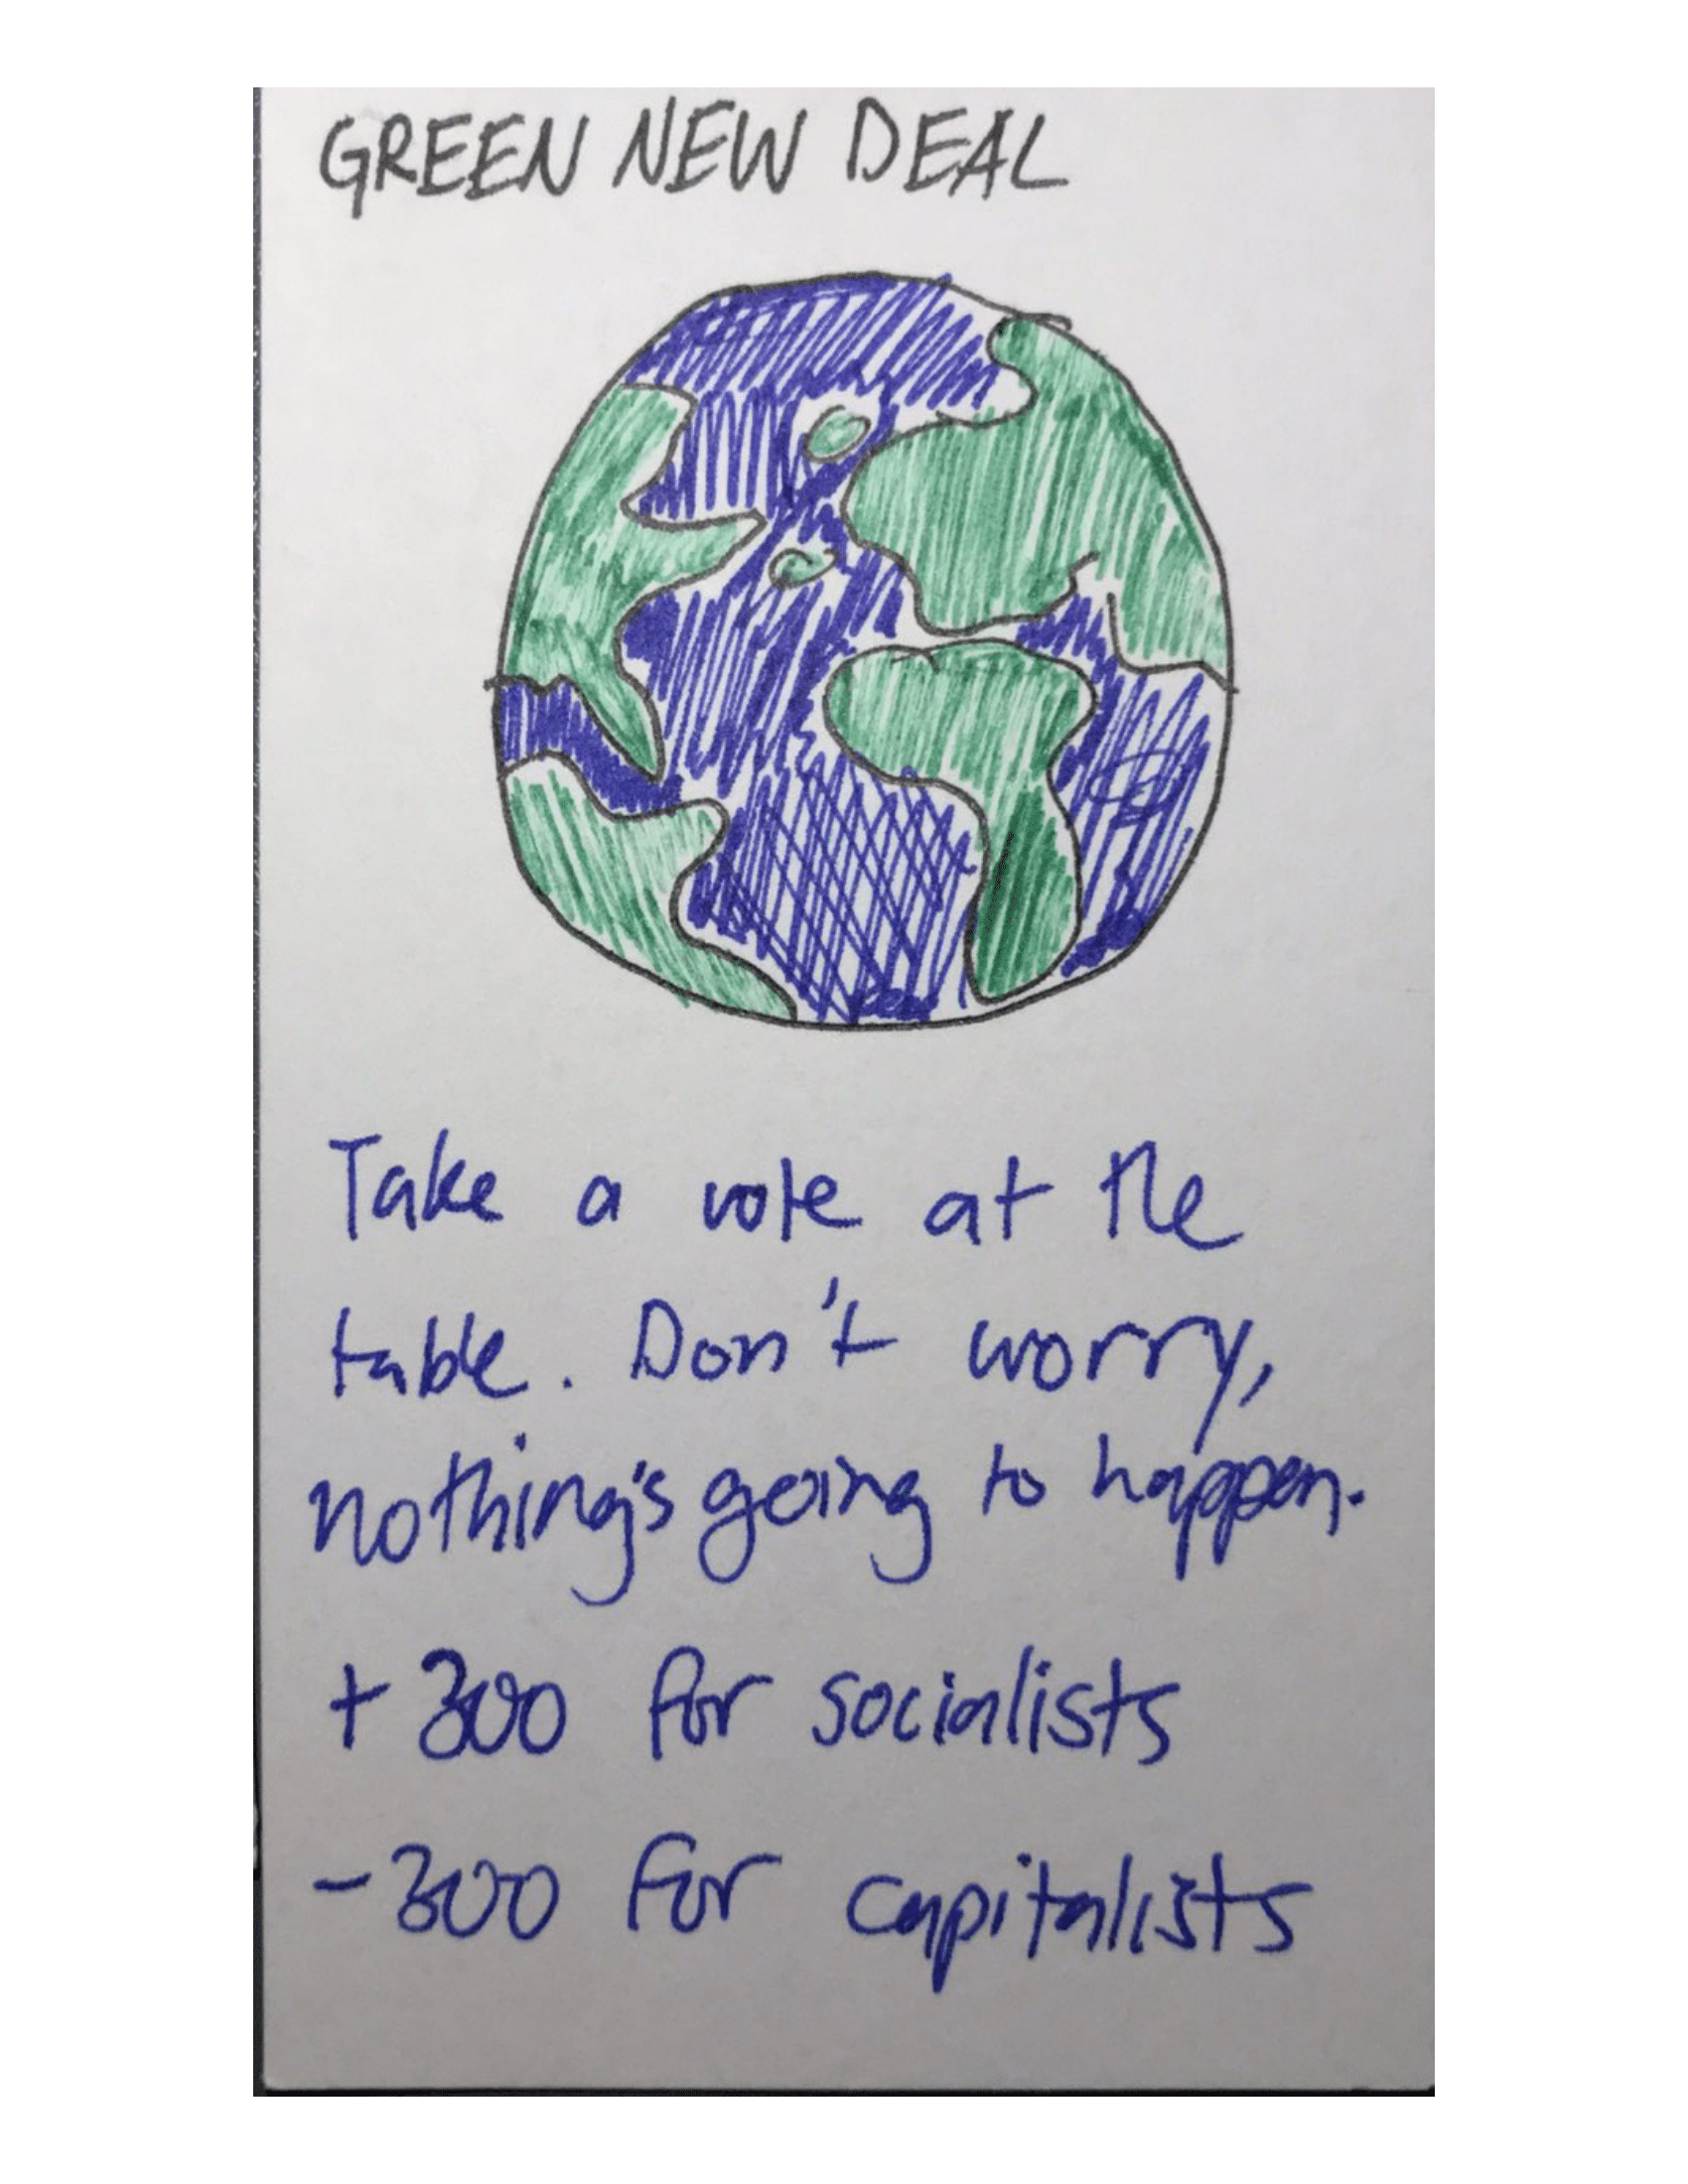 GREEN NEW DEAL
Take a vote at the
table. Don't worry,
nothing's going to happen.
+300 for socialists
-300 for capitalists